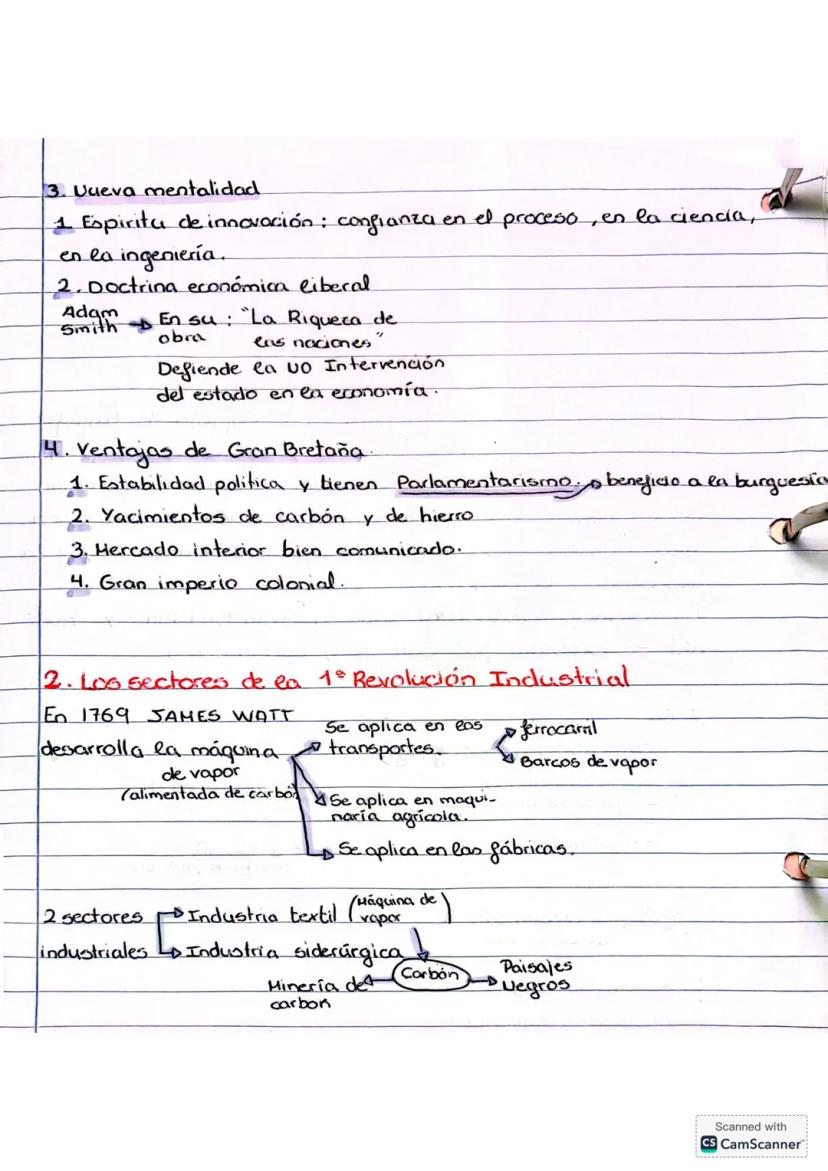 3. Nueva mentalidad
1 Espiritu de innovación: confianza en el proceso, en la ciencia,
en la ingeniería.
2. Doctrina económica liberal
Adam Smith → En su obra: "La Riqueca de las naciones"
Defiende la NO Intervención
del estado en la economía.
4. Ventajas de Gran Bretaña.
1. Estabilidad politica y tienen Parlamentarismo. → beneficio a la burguesía
2. Yacimientos de carbón y de hierro
3. Mercado interior bien comunicado.
4. Gran imperio colonial.
2. Los sectores de la 1ª Revolución Industrial
En 1769 JAMES WATT
desarrolla la máquina
de vapor
(alimentada de carbón
Se aplica en los
transportes.
ferrocarril
Barcos de vapor
Se aplica en maqui-
naria agrícola.
Se aplica en las fábricas.
2 sectores
industriales
Industria textil (Máquina de vapor)
Industria siderúrgica
Carbón
Minería de
carbon
Paisajes
Negros
Scanned with
CS CamScanner